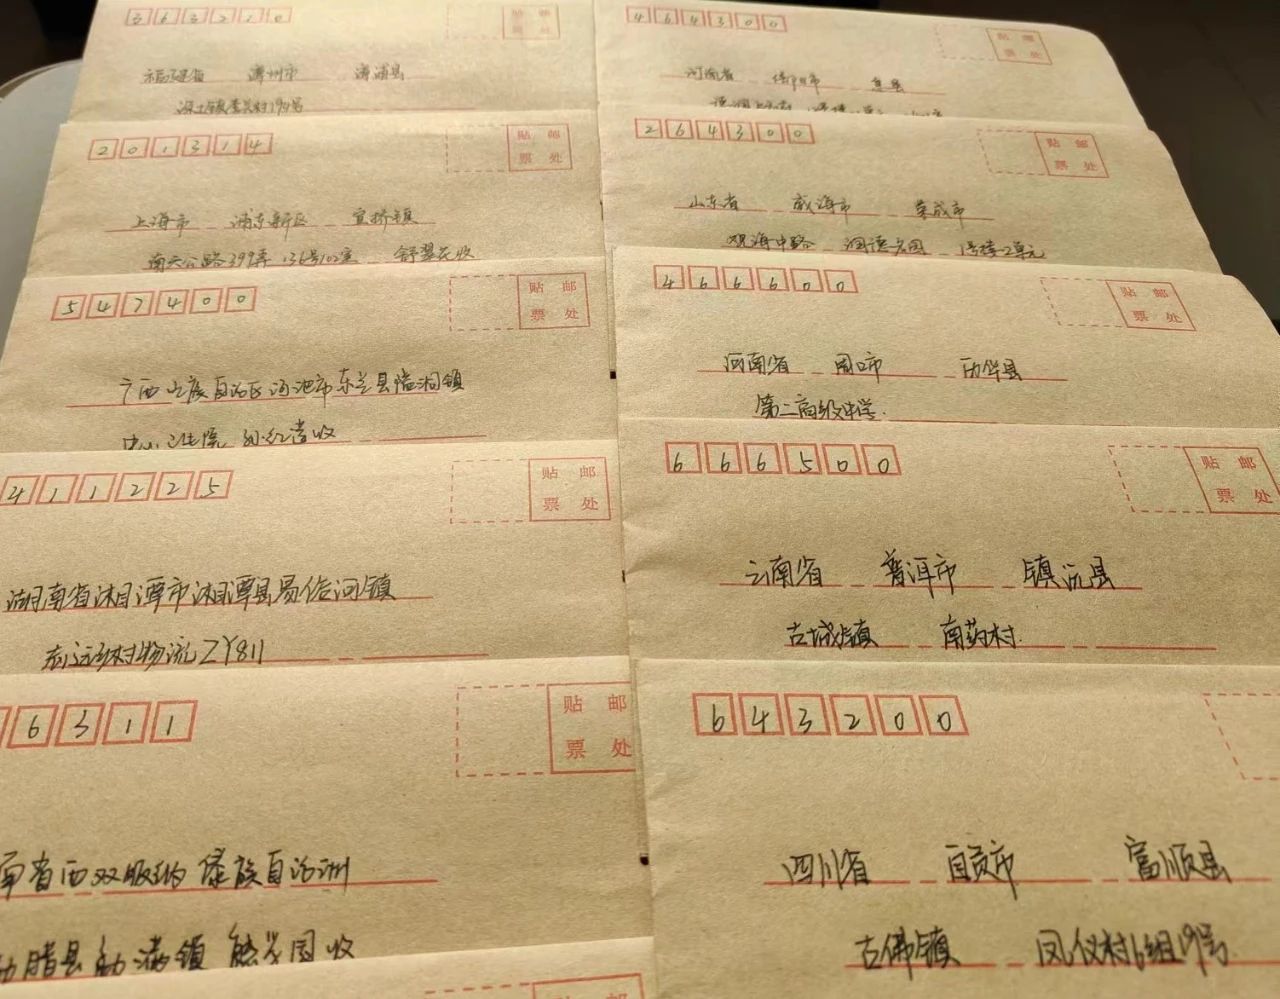 363210
贴 邮
票 处
福建省 漳州市 漳浦县
464300
贴 邮
票 处
河南省 信阳市 息县
201314
贴 邮
票 处
上海市 浦东新区 宣桥镇
南六公路399弄 136号102室 舒翠花收
264300
贴 邮
票 处
山东省 威海市 荣成市
观海中路 润德花园 1号楼2单元
547400
贴 邮
票 处
广西壮族自治区河池市东兰县隘洞镇
中心卫生院 收
466600
贴 邮
票 处
河南省 周口市 西华县
第二高级中学
411225
贴 邮
票 处
湖南省湘潭市湘潭县易俗河镇
村物流ZY811
666500
贴 邮
票 处
云南省 普洱市 镇沅县
古城镇 南药村
6311
贴 邮
票 处
南省西双版纳傣族自治洲
勐腊县勐满镇 熊 园收
643200
四川省 自贡市 富顺县
古佛镇 凤仪村6组19号
贴 邮